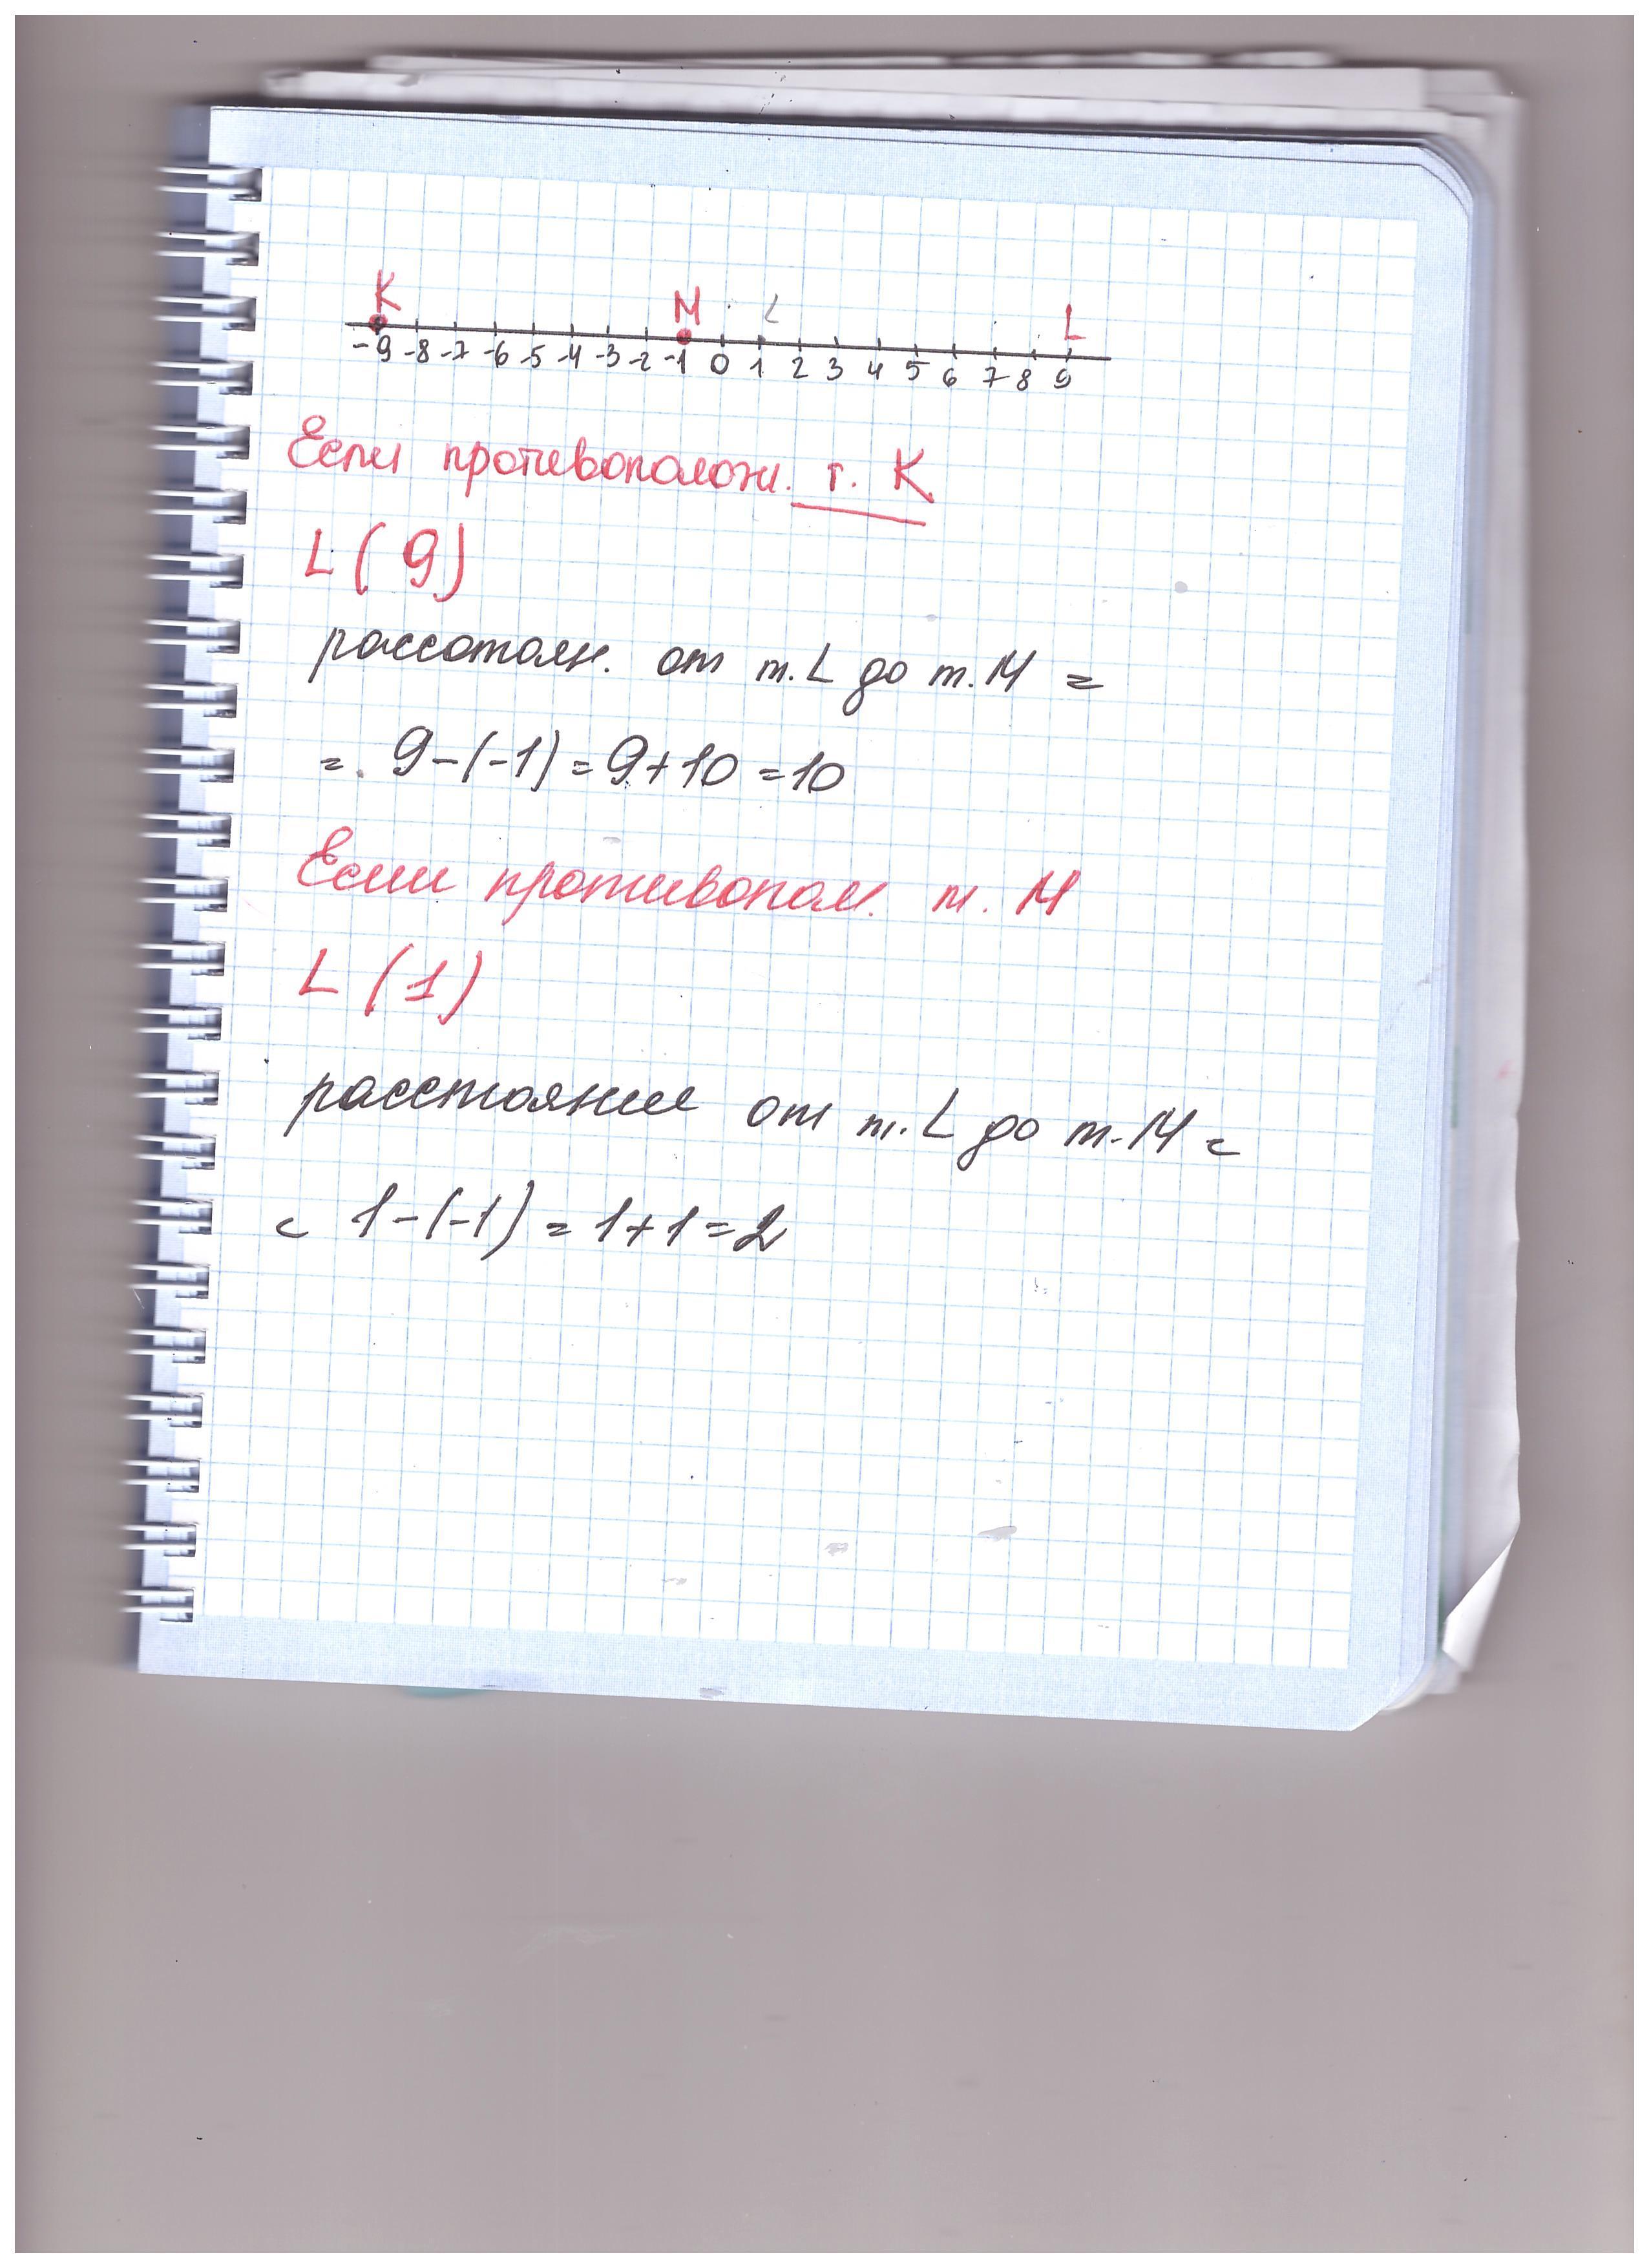 K M L L
-9 -8 -7 -6 -5 -4 -3 -2 -1 0 1 2 3 4 5 6 7 8 9
Если противополож. т. K
L (9)
рассотоян. от т. L до т. M =
= 9-(-1) = 9+10 = 10
Если противопол. т. M
L (1)
расстояние от т. L до т. M =
= 1-(-1) = 1+1 = 2